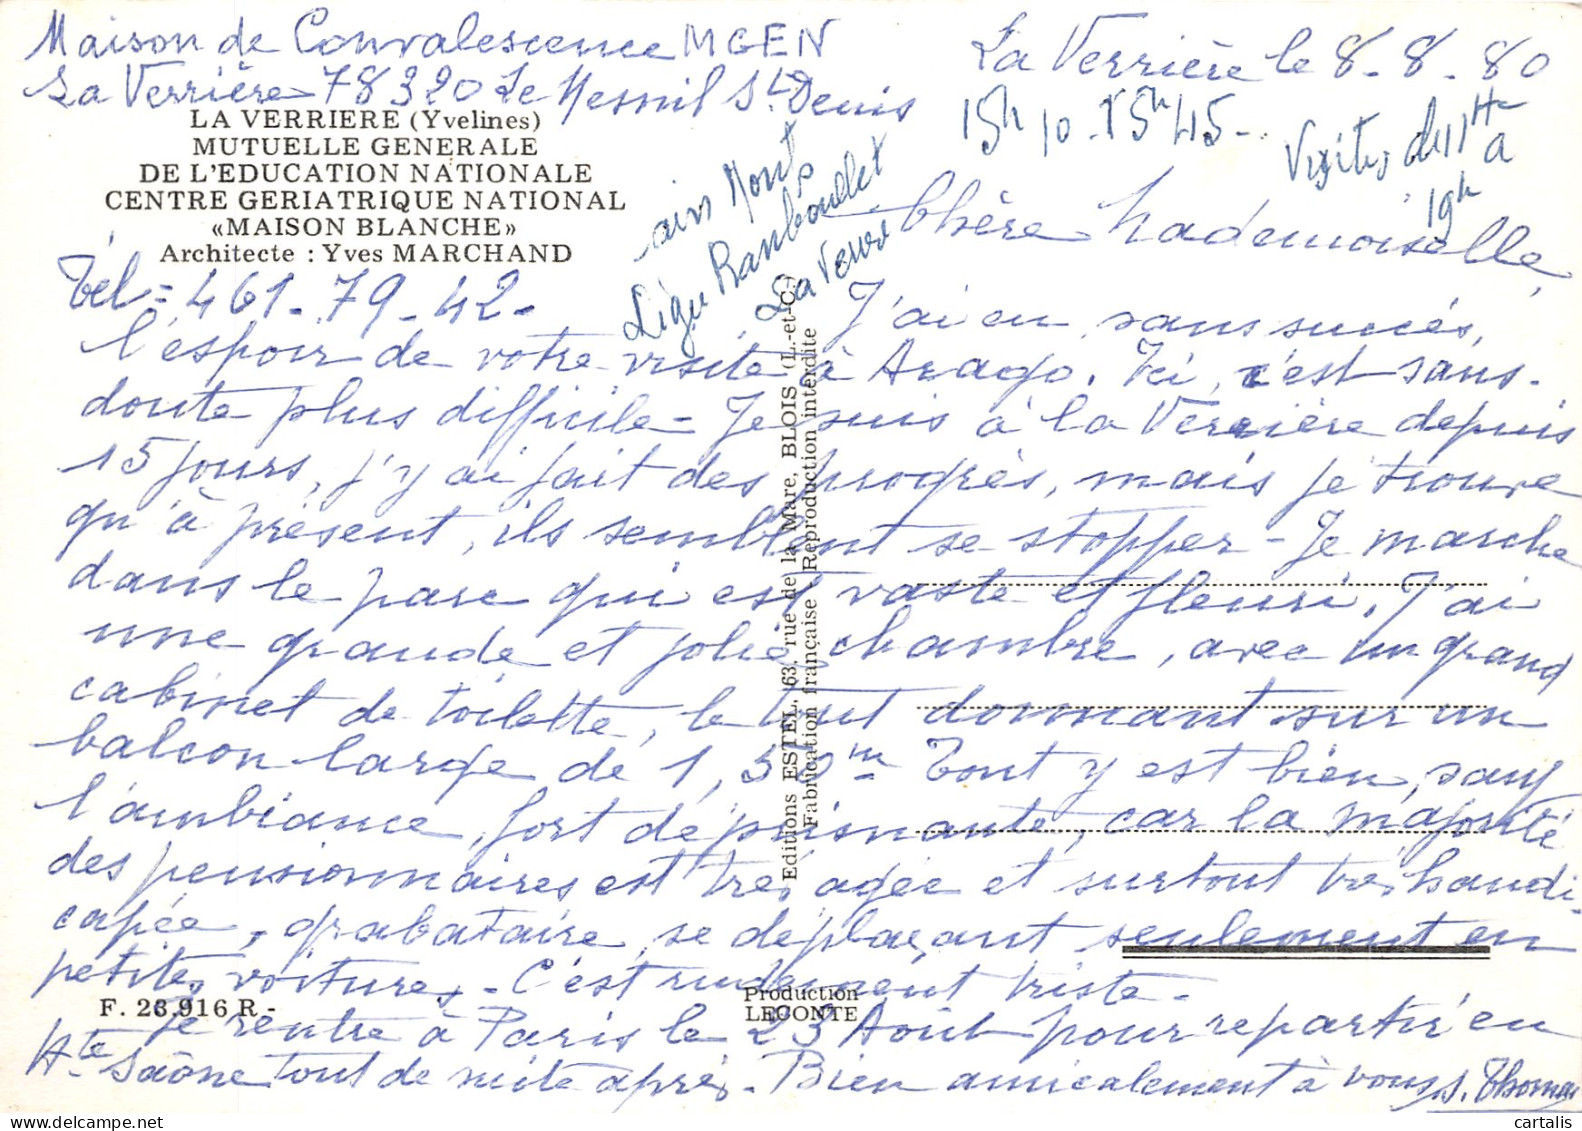 Maison de Convalescence MGEN
La Verrière 78320 Le Mesnil St Denis
La Verrière le 8.8.80
15h10 - 15h45 -
Visites de 11h à
19h
LA VERRIERE (Yvelines)
MUTUELLE GENERALE
DE L'EDUCATION NATIONALE
CENTRE GERIATRIQUE NATIONAL
«MAISON BLANCHE»
Architecte : Yves MARCHAND
Tél = 461-79-42-
Mont
Ligne Rambouillet
La Verri
Chère Mademoiselle,
J'ai eu, sans succès,
l'espoir de votre visite à Arago. Ici, c'est sans
doute plus difficile - Je suis à la Verrière depuis
15 jours, j'y ai fait des progrès, mais je trouve
qu'à présent, ils semblent se stopper - Je marche
dans le parc qui est vaste et fleuri. J'ai
une grande et jolie chambre, avec un grand
cabinet de toilette, le tout donnant sur un
balcon large de 1,50m Tout y est bien, sauf
l'ambiance, fort déprimante, car la majorité
des pensionnaires est très agée et surtout très handi-
capée, grabataire, se déplaçant seulement en
petites voitures - C'est rudement triste -
Je rentre à Paris le 23 Août pour repartir en
Hte Saône tout de suite après - Bien amicalement à vous, S. Thomas
Editions ESTEL, 63, rue de la Mare, BLOIS (L.-et-C.)
Fabrication française - Reproduction interdite
F. 26.916 R -
Production
LECONTE
cartalis